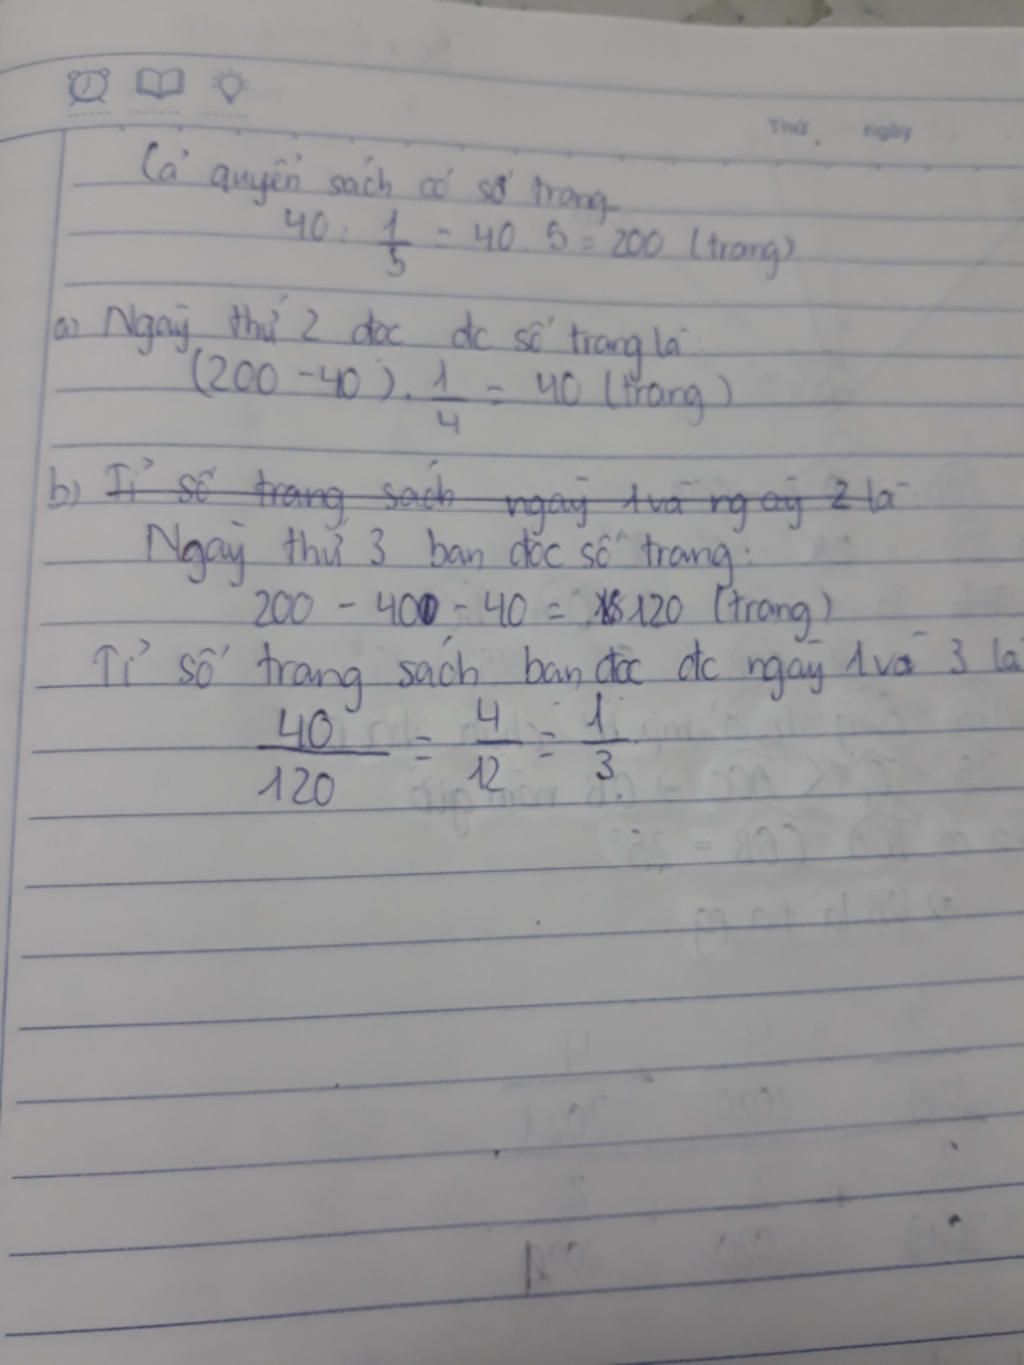 Thứ. ngày
Cả quyển sách có số trang
40 : 1/5 = 40 . 5 = 200 (trang)
a) Ngày thứ 2 đọc đc số trang là:
(200 - 40) . 1/4 = 40 (trang)
b) Tỉ số trang sách ngày 1 và ngày 2 là
Ngày thứ 3 bạn đọc số trang:
200 - 40 - 40 = 120 (trang)
Tỉ số trang sách bạn đọc đc ngày 1 và 3 là
40/120 = 4/12 = 1/3